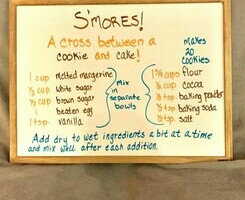 S'MORES!
A cross between a
cookie and cake!
makes
20
cookies
1 cup melted margerine
½ cup white sugar
½ cup brown sugar
1 beaten egg
1 tsp. vanilla
Mix
in
separate
bowls
flour
cocoa
½ tsp. baking powder
½ tsp. baking soda
½ tsp. salt
Add dry to wet ingredients a bit at a time
and mix well after each addition.